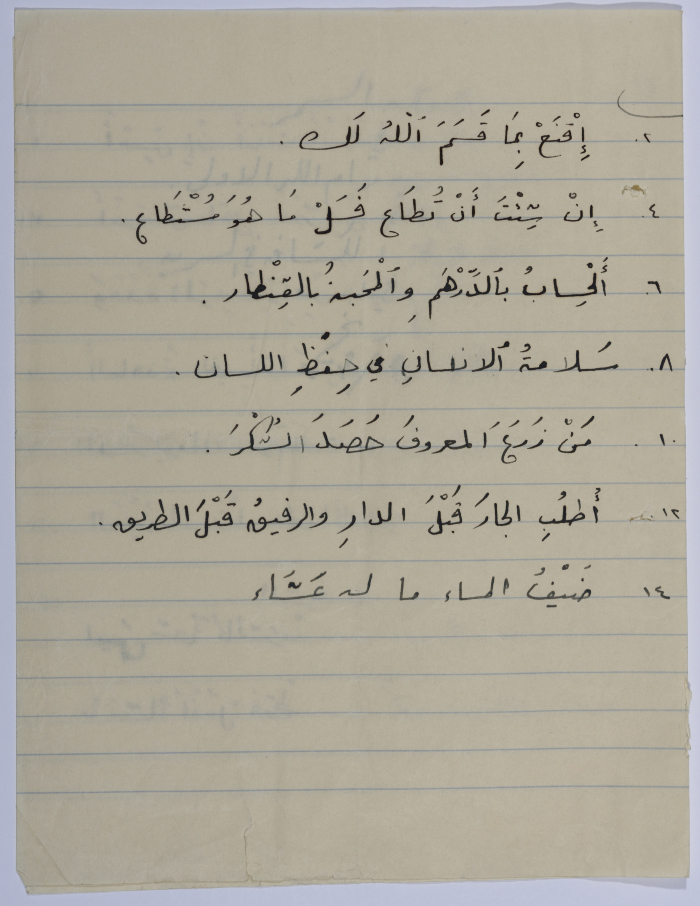 ٢. إِقْنَعْ بِمَا قَسَمَ ٱللهُ لَك .
٤. إِنْ شِئْتَ أَنْ تُطَاع فَسَلْ مَا هُوَ مُسْتَطَاع .
٦. أَلْحِسابُ بٱلدَّرْهَمِ وٱلْمَحَبةُ بالقِنْطار .
٨. سَلامةُ ٱلانسانِ في حِفْظِ اللسان .
١٠. مَنْ زَرَعَ المعروفَ حَصَدَ الشُّكْرَ .
١٢ أُطلُبِ الجارَ قَبْلَ الدارِ والرفيقَ قَبْلَ الطريق .
١٤ ضَيْفُ المساء ما له عَشَاء